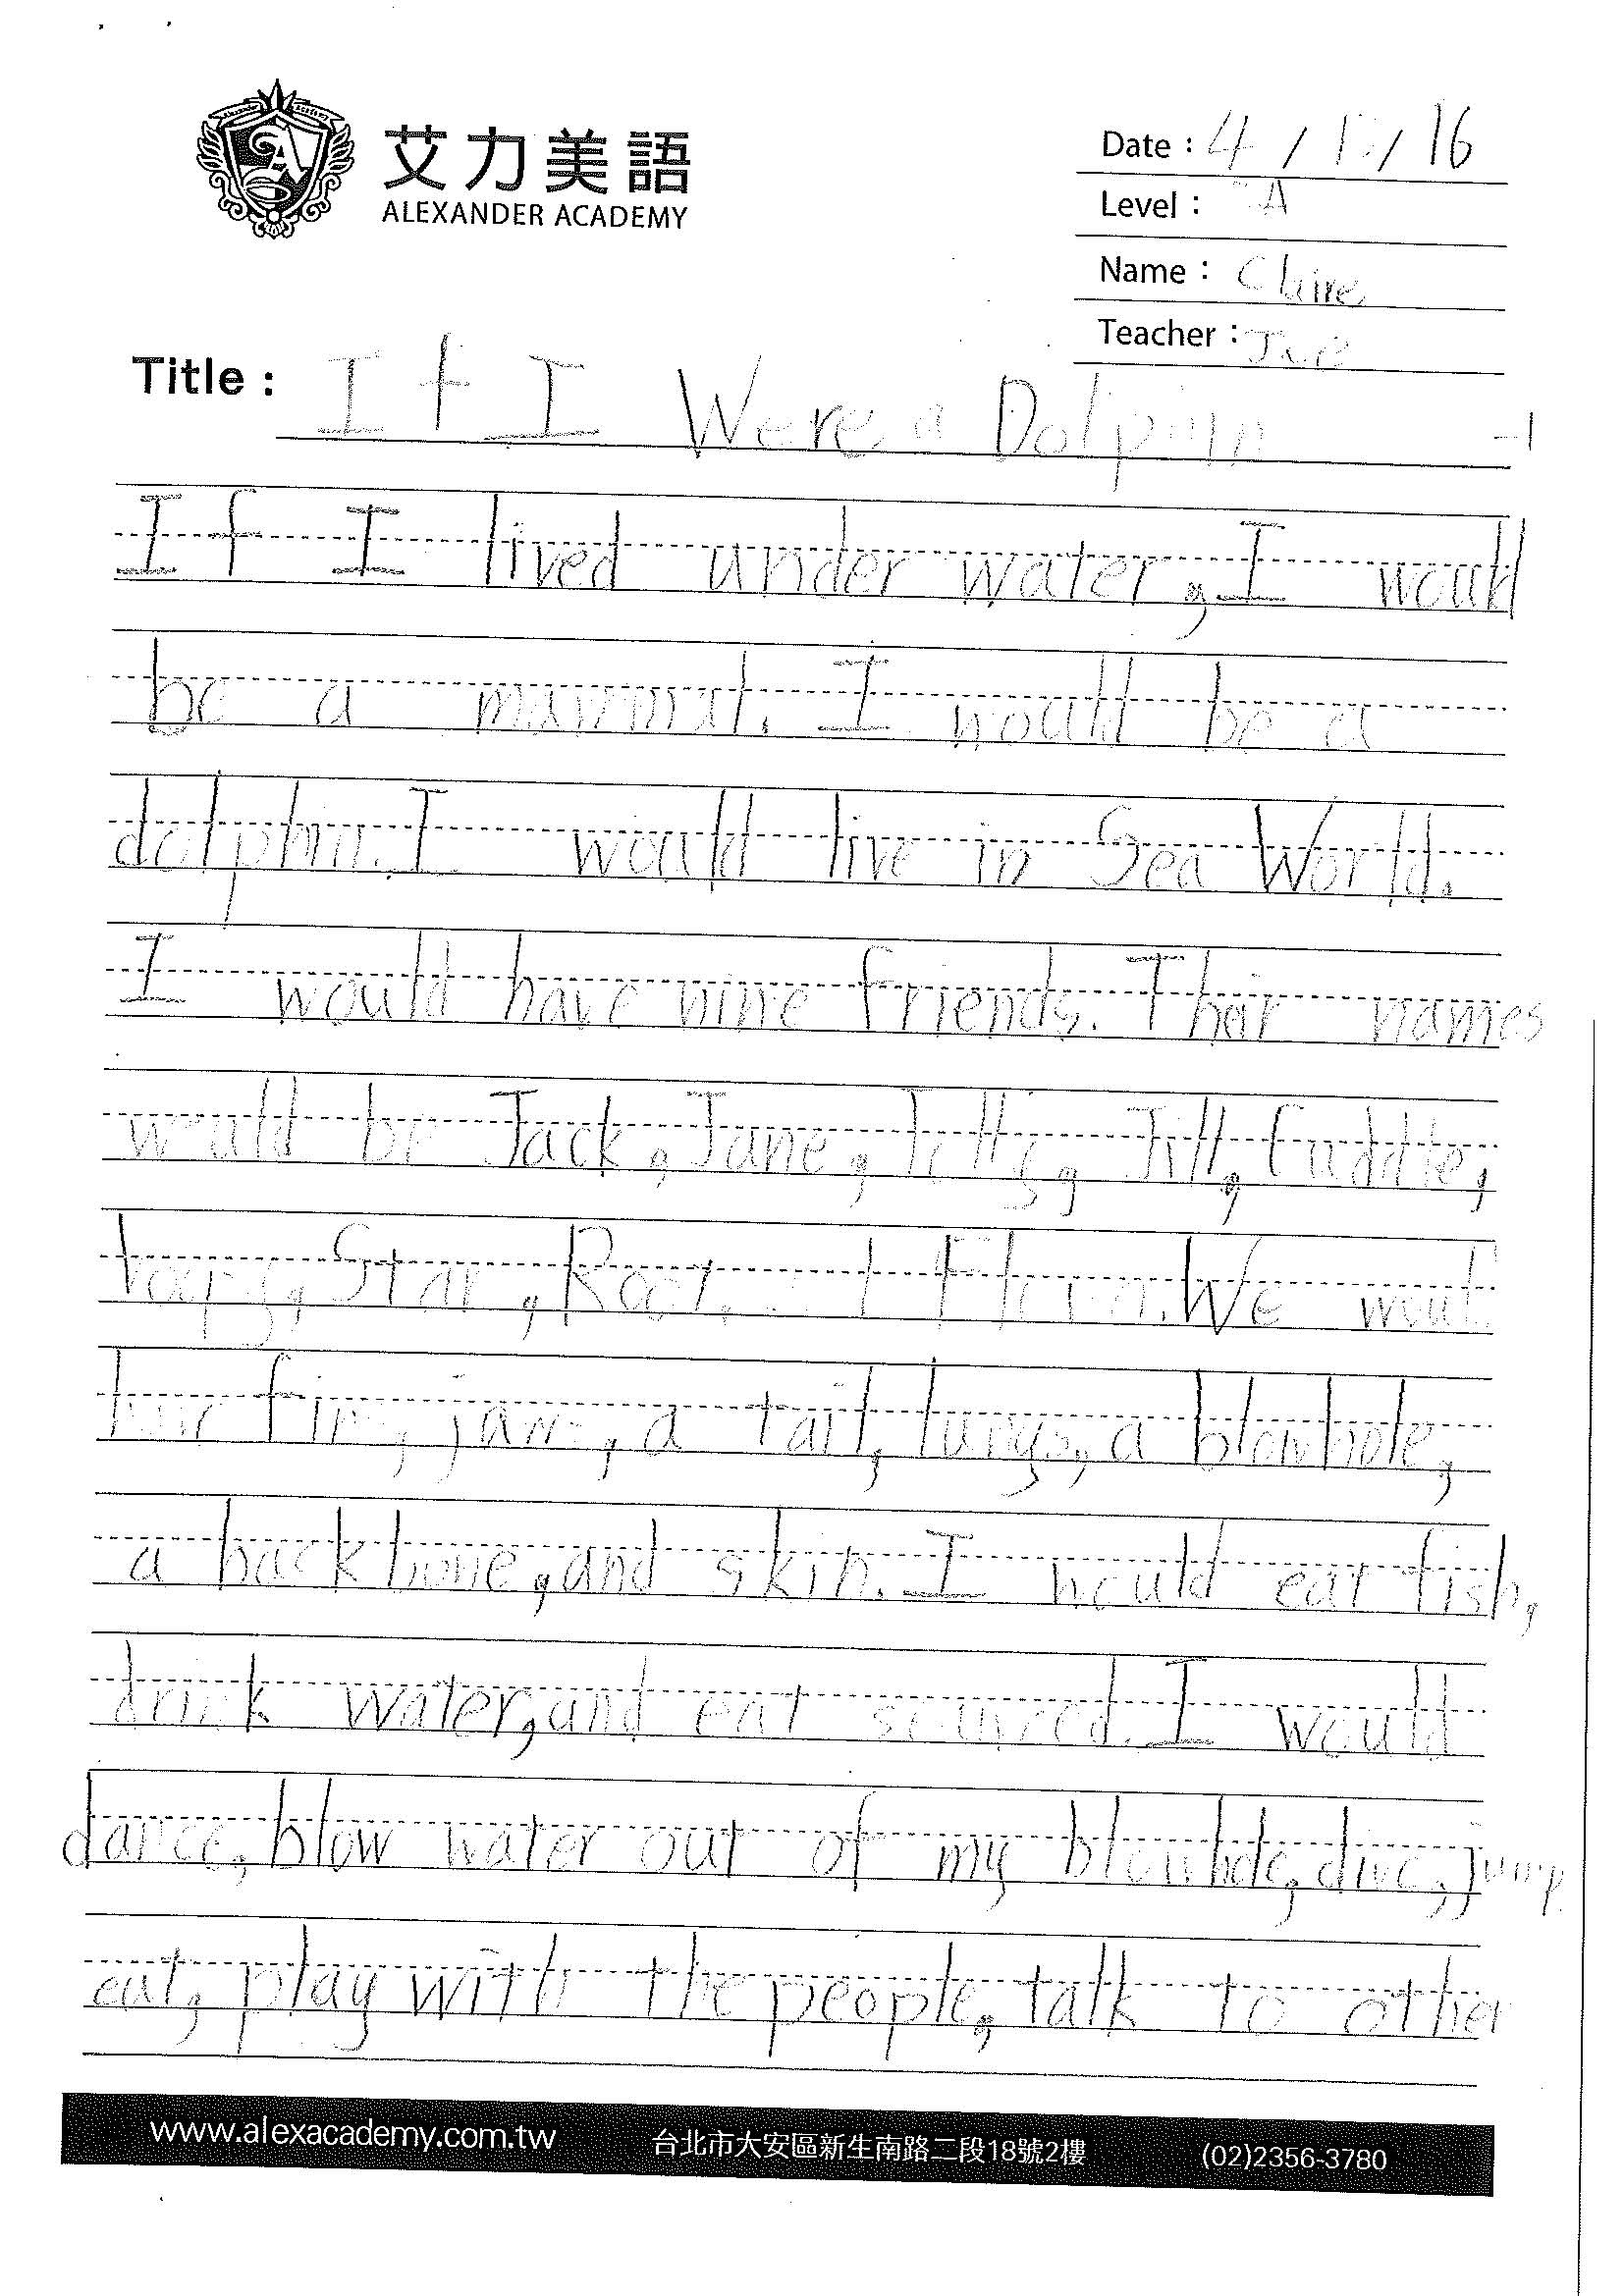 艾力美語
ALEXANDER ACADEMY
Date : 4 / 1 / 16
Level : A
Name : Claire
Teacher : Joe
Title : If I Were a Dolphin -1
If I lived under water, I would
be a mammal. I would be a
dolphin. I would live in Sea World.
I would have nine friends. Their names
would be Jack, Jane, Jill, Cuddle,
Star, We would
have fins, jaws, a tail, lungs, a blowhole,
a backbone, and skin. I would eat fish,
drink water, and eat I would
dance, blow water out of my blowhole, dive, jump
eat, play with the people, talk to other
www.alexacademy.com.tw 台北市大安區新生南路二段18號2樓 (02)2356-3780